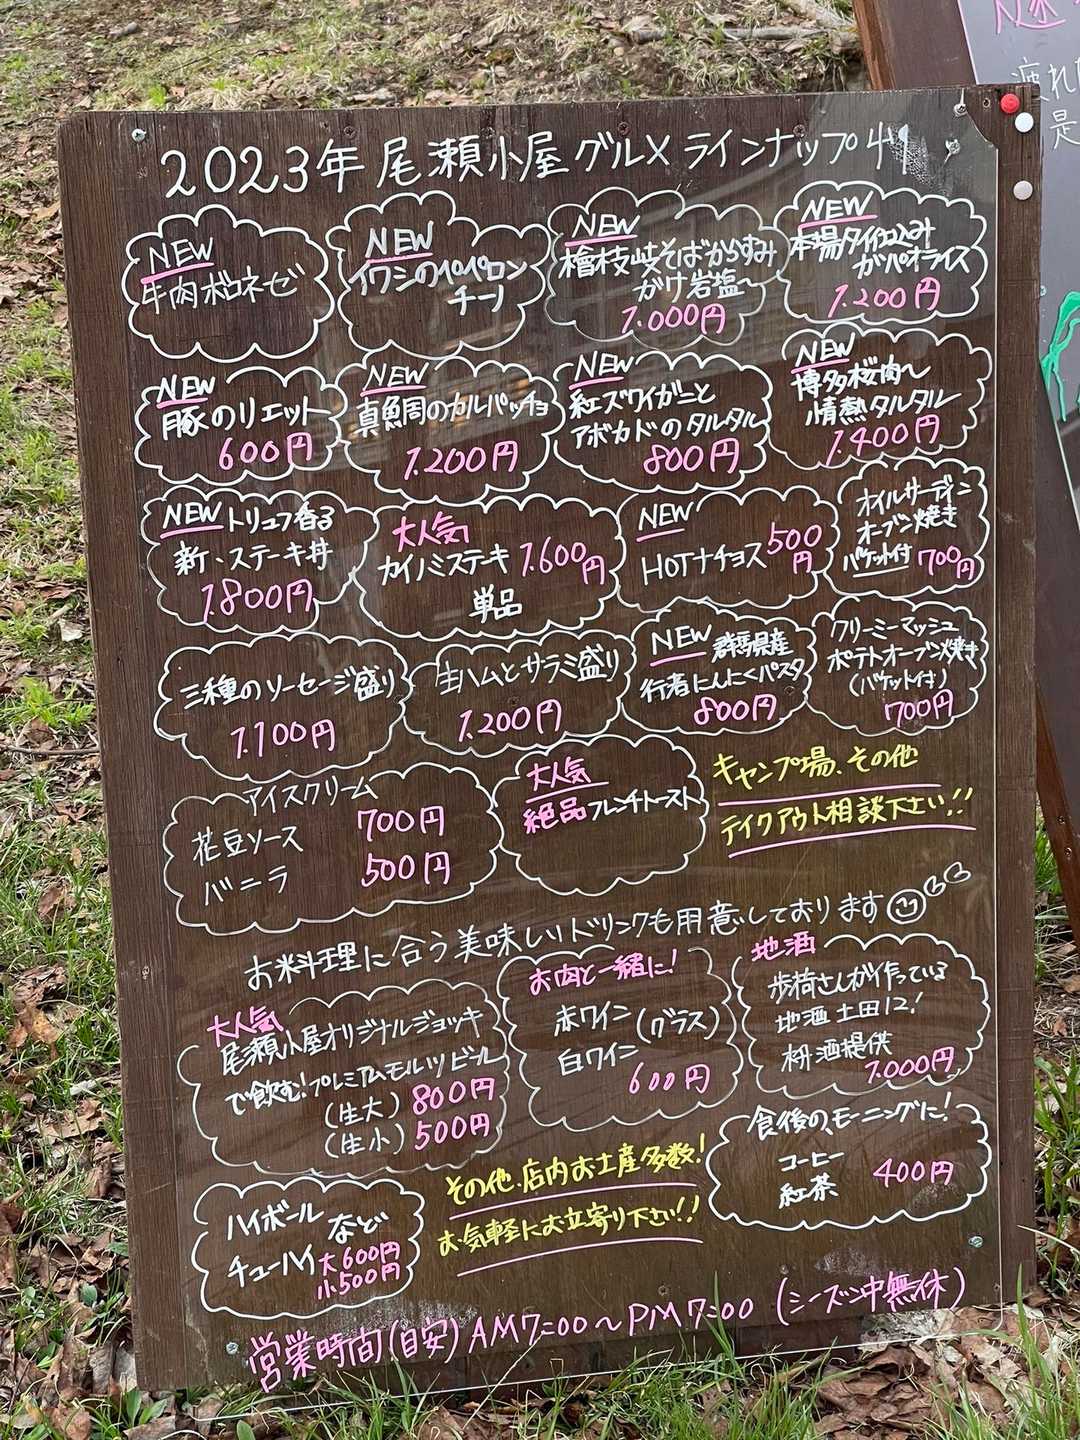 2023年 尾瀬小屋 グルメ ラインナップ
NEW
牛肉ボロネーゼ
NEW
イワシのペペロン
チーノ
NEW
檜枝岐そばからすみ
がけ岩塩〜
1.000円
NEW
本場タイ
ガパオライス
1.200円
NEW
豚のリエット
600円
NEW
真鯛のカルパッチョ
1.200円
NEW
紅ズワイガニと
アボカドのタルタル
800円
NEW
博多桜肉〜
情熱タルタル
1.400円
NEW トリュフ香る
新、ステーキ丼
1.800円
大人気
カイノミステーキ 1.600円
単品
NEW
HOTナチョス 500円
オイルサーディン
オーブン焼き
バケット付 700円
三種のソーセージ盛り
1.100円
生ハムとサラミ盛り
1.200円
NEW 群馬県産
行者にんにくパスタ
800円
クリーミーマッシュ
ポテトオーブン焼き
(バケット付)
700円
アイスクリーム
花豆ソース 700円
バニラ 500円
大人気
絶品フレンチトースト
キャンプ場、その他
テイクアウト相談下さい!!
お料理に合う美味しいドリンクも用意しております
大人気
尾瀬小屋オリジナルジョッキ
で飲む!プレミアムモルツビール
(生大) 800円
(生小) 500円
お肉と一緒に!
赤ワイン (グラス)
白ワイン
600円
地酒
歩荷さんが作っている
地酒 土田12!
枡酒提供
1.000円
食後の、モーニングに!
コーヒー
紅茶 400円
ハイボール
チューハイ など
大600円
小500円
その他、店内お土産多数!
お気軽にお立寄り下さい!!
営業時間(目安) AM7:00〜PM7:00 (シーズン中無休)
疲れ
是